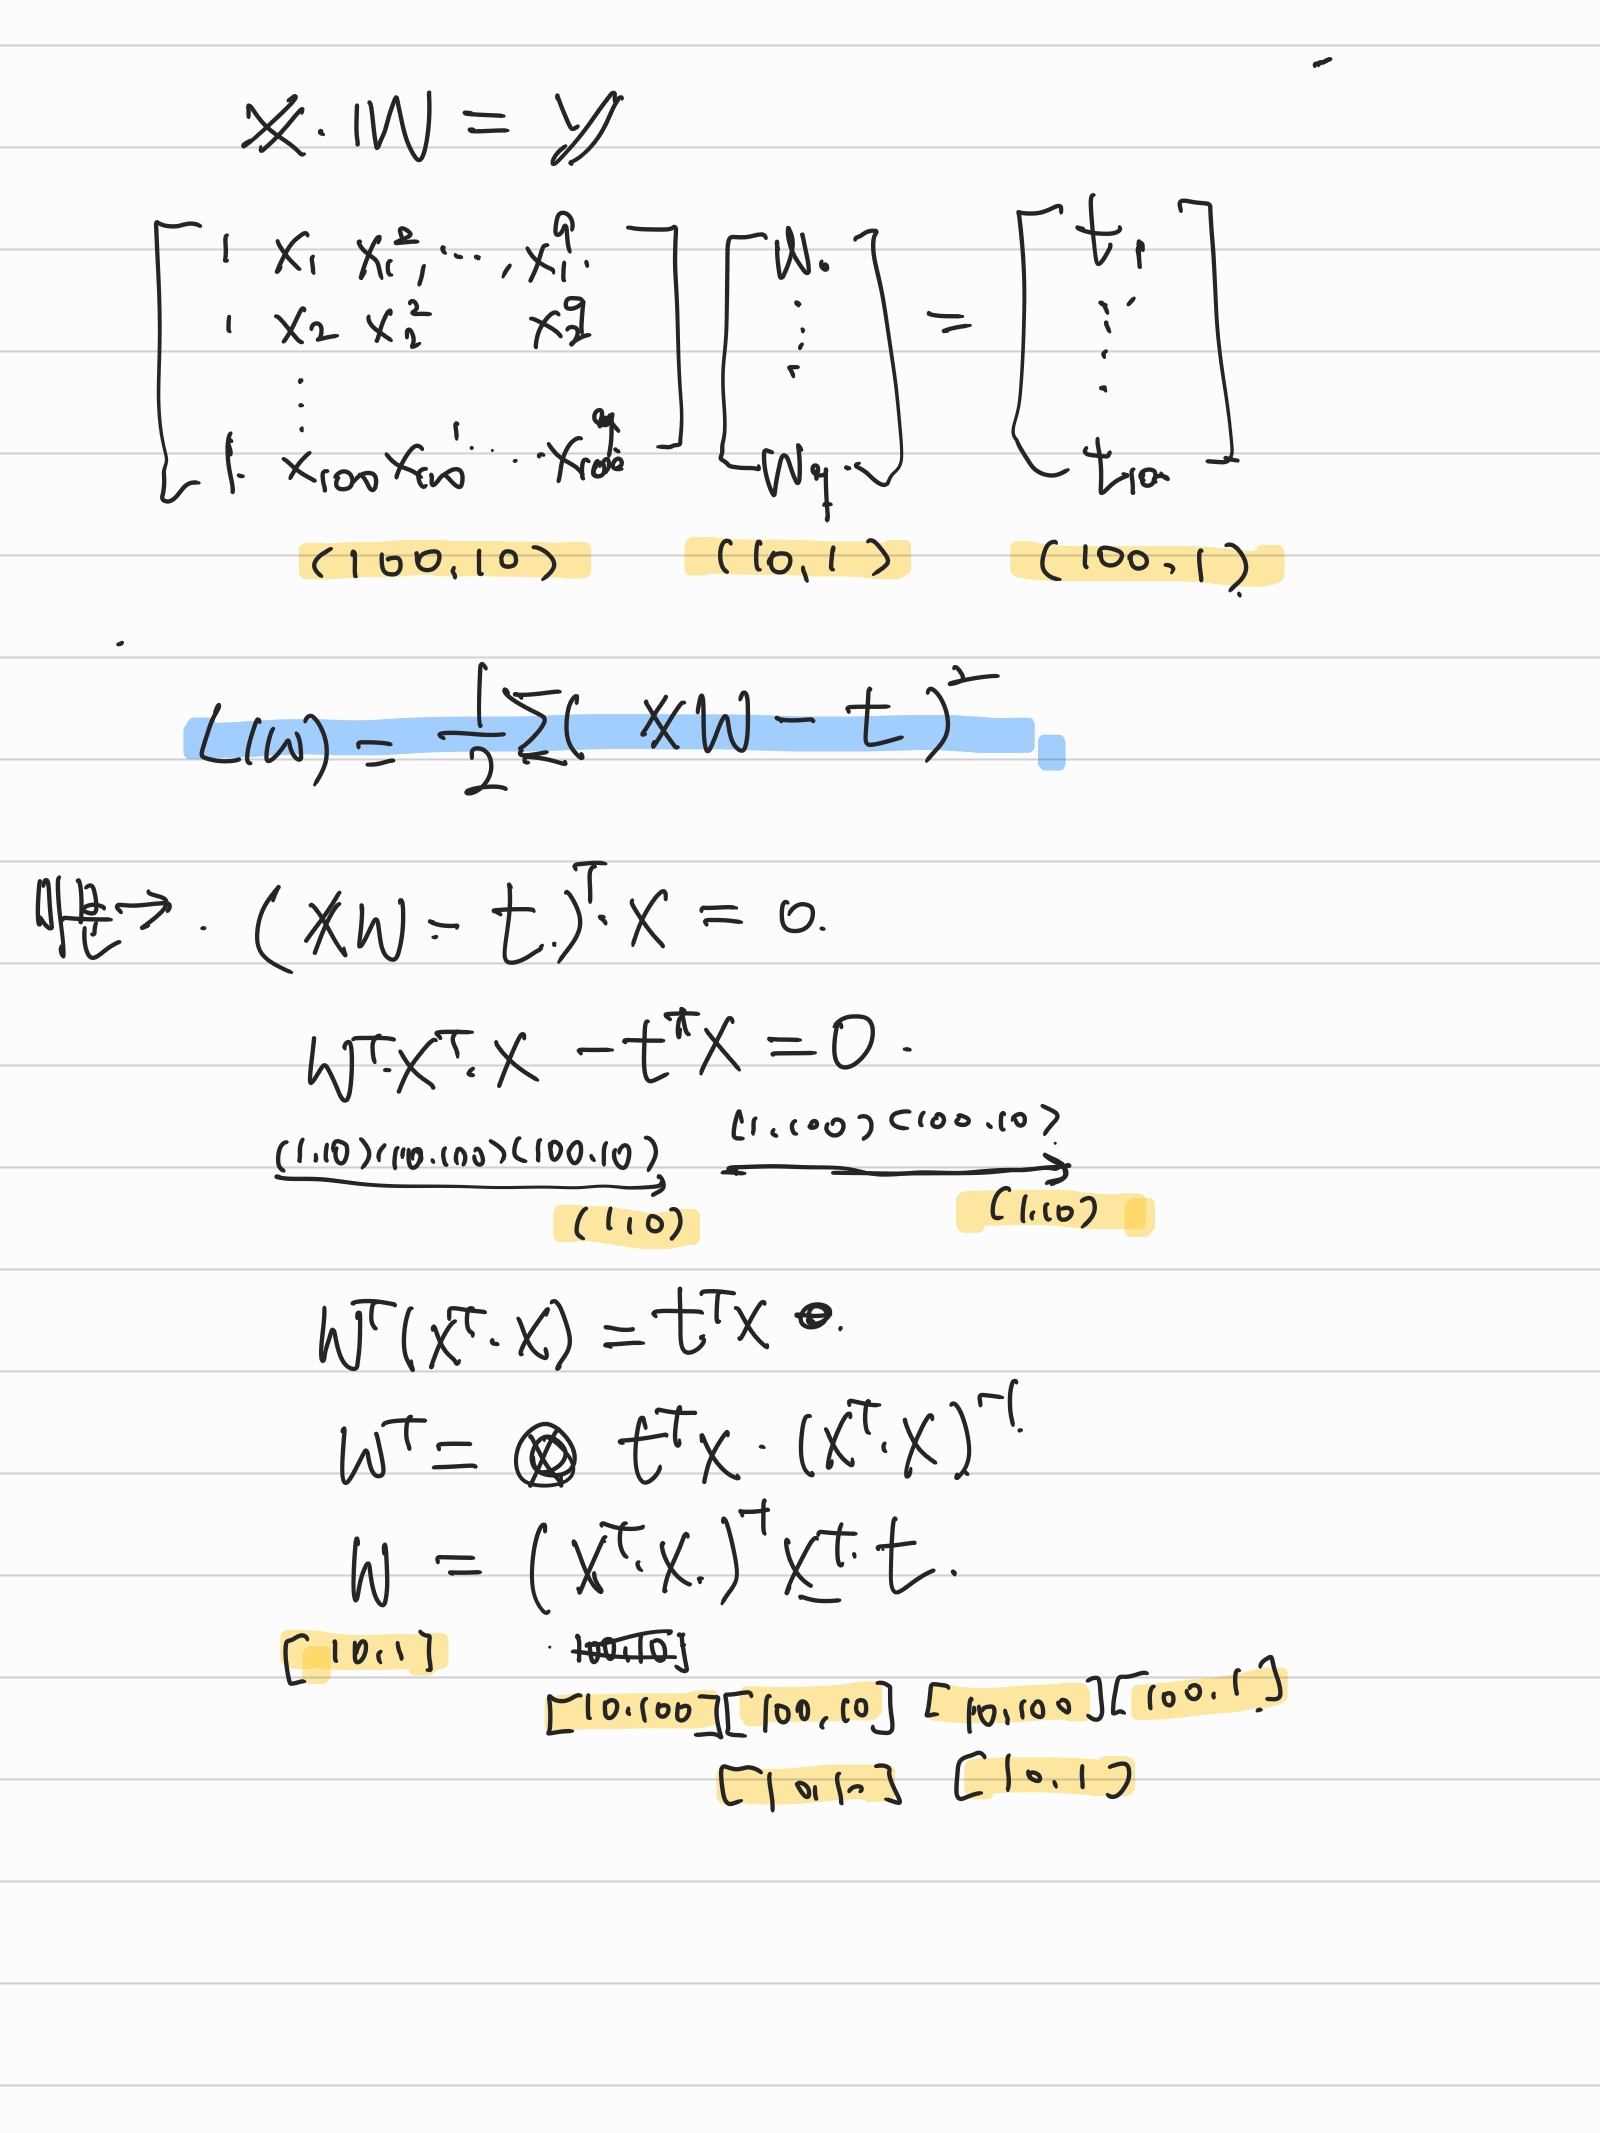 X · W = Y
[ 1 x₁ x₁², ..., x₁⁹ ] [ w₀ ] = [ t₁ ]
[ 1 x₂ x₂² x₂⁹ ] [ ⋮ ] [ ⋮ ]
[ 1 x₁₀₀ x₁₀₀ ... x₁₀₀⁹ ] [ w₉ ] [ t₁₀₀ ]
(100,10) (10,1) (100,1)
L(W) = 1/2 Σ( XW − t )²
미분 → (XW − t)ᵀ · X = 0.
Wᵀ·Xᵀ·X − tᵀX = 0.
(1,10)(10,100)(100,10) (1,100)(100,10)
(1,10) (1,10)
Wᵀ(Xᵀ·X) = tᵀX
Wᵀ = tᵀX · (Xᵀ·X)⁻¹
W = (Xᵀ·X)⁻¹ Xᵀ·t.
[10,1] 100,10]
[10,100][100,10] [10,100][100,1]
[10,10] [10,1]